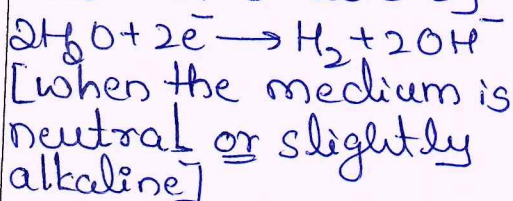 2H₂O + 2e⁻ → H₂ + 2OH⁻
[when the medium is
neutral or slightly
alkaline]